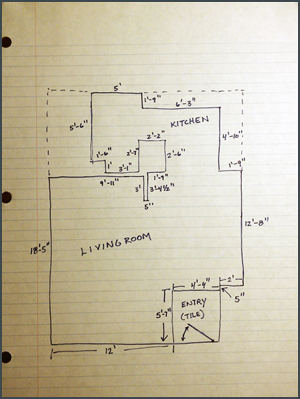 5'
1'-9"
6'-3"
KITCHEN
5'-6"
2'-2"
4'-10"
1'-6"
2'-7"
2'-6"
1'
3'-1"
1'-9"
1'-9"
9'-11"
3'
3'-4½"
5"
12'-8"
18'-5"
LIVING ROOM
4'-4"
2'
5'-7"
ENTRY
(TILE)
5"
12'